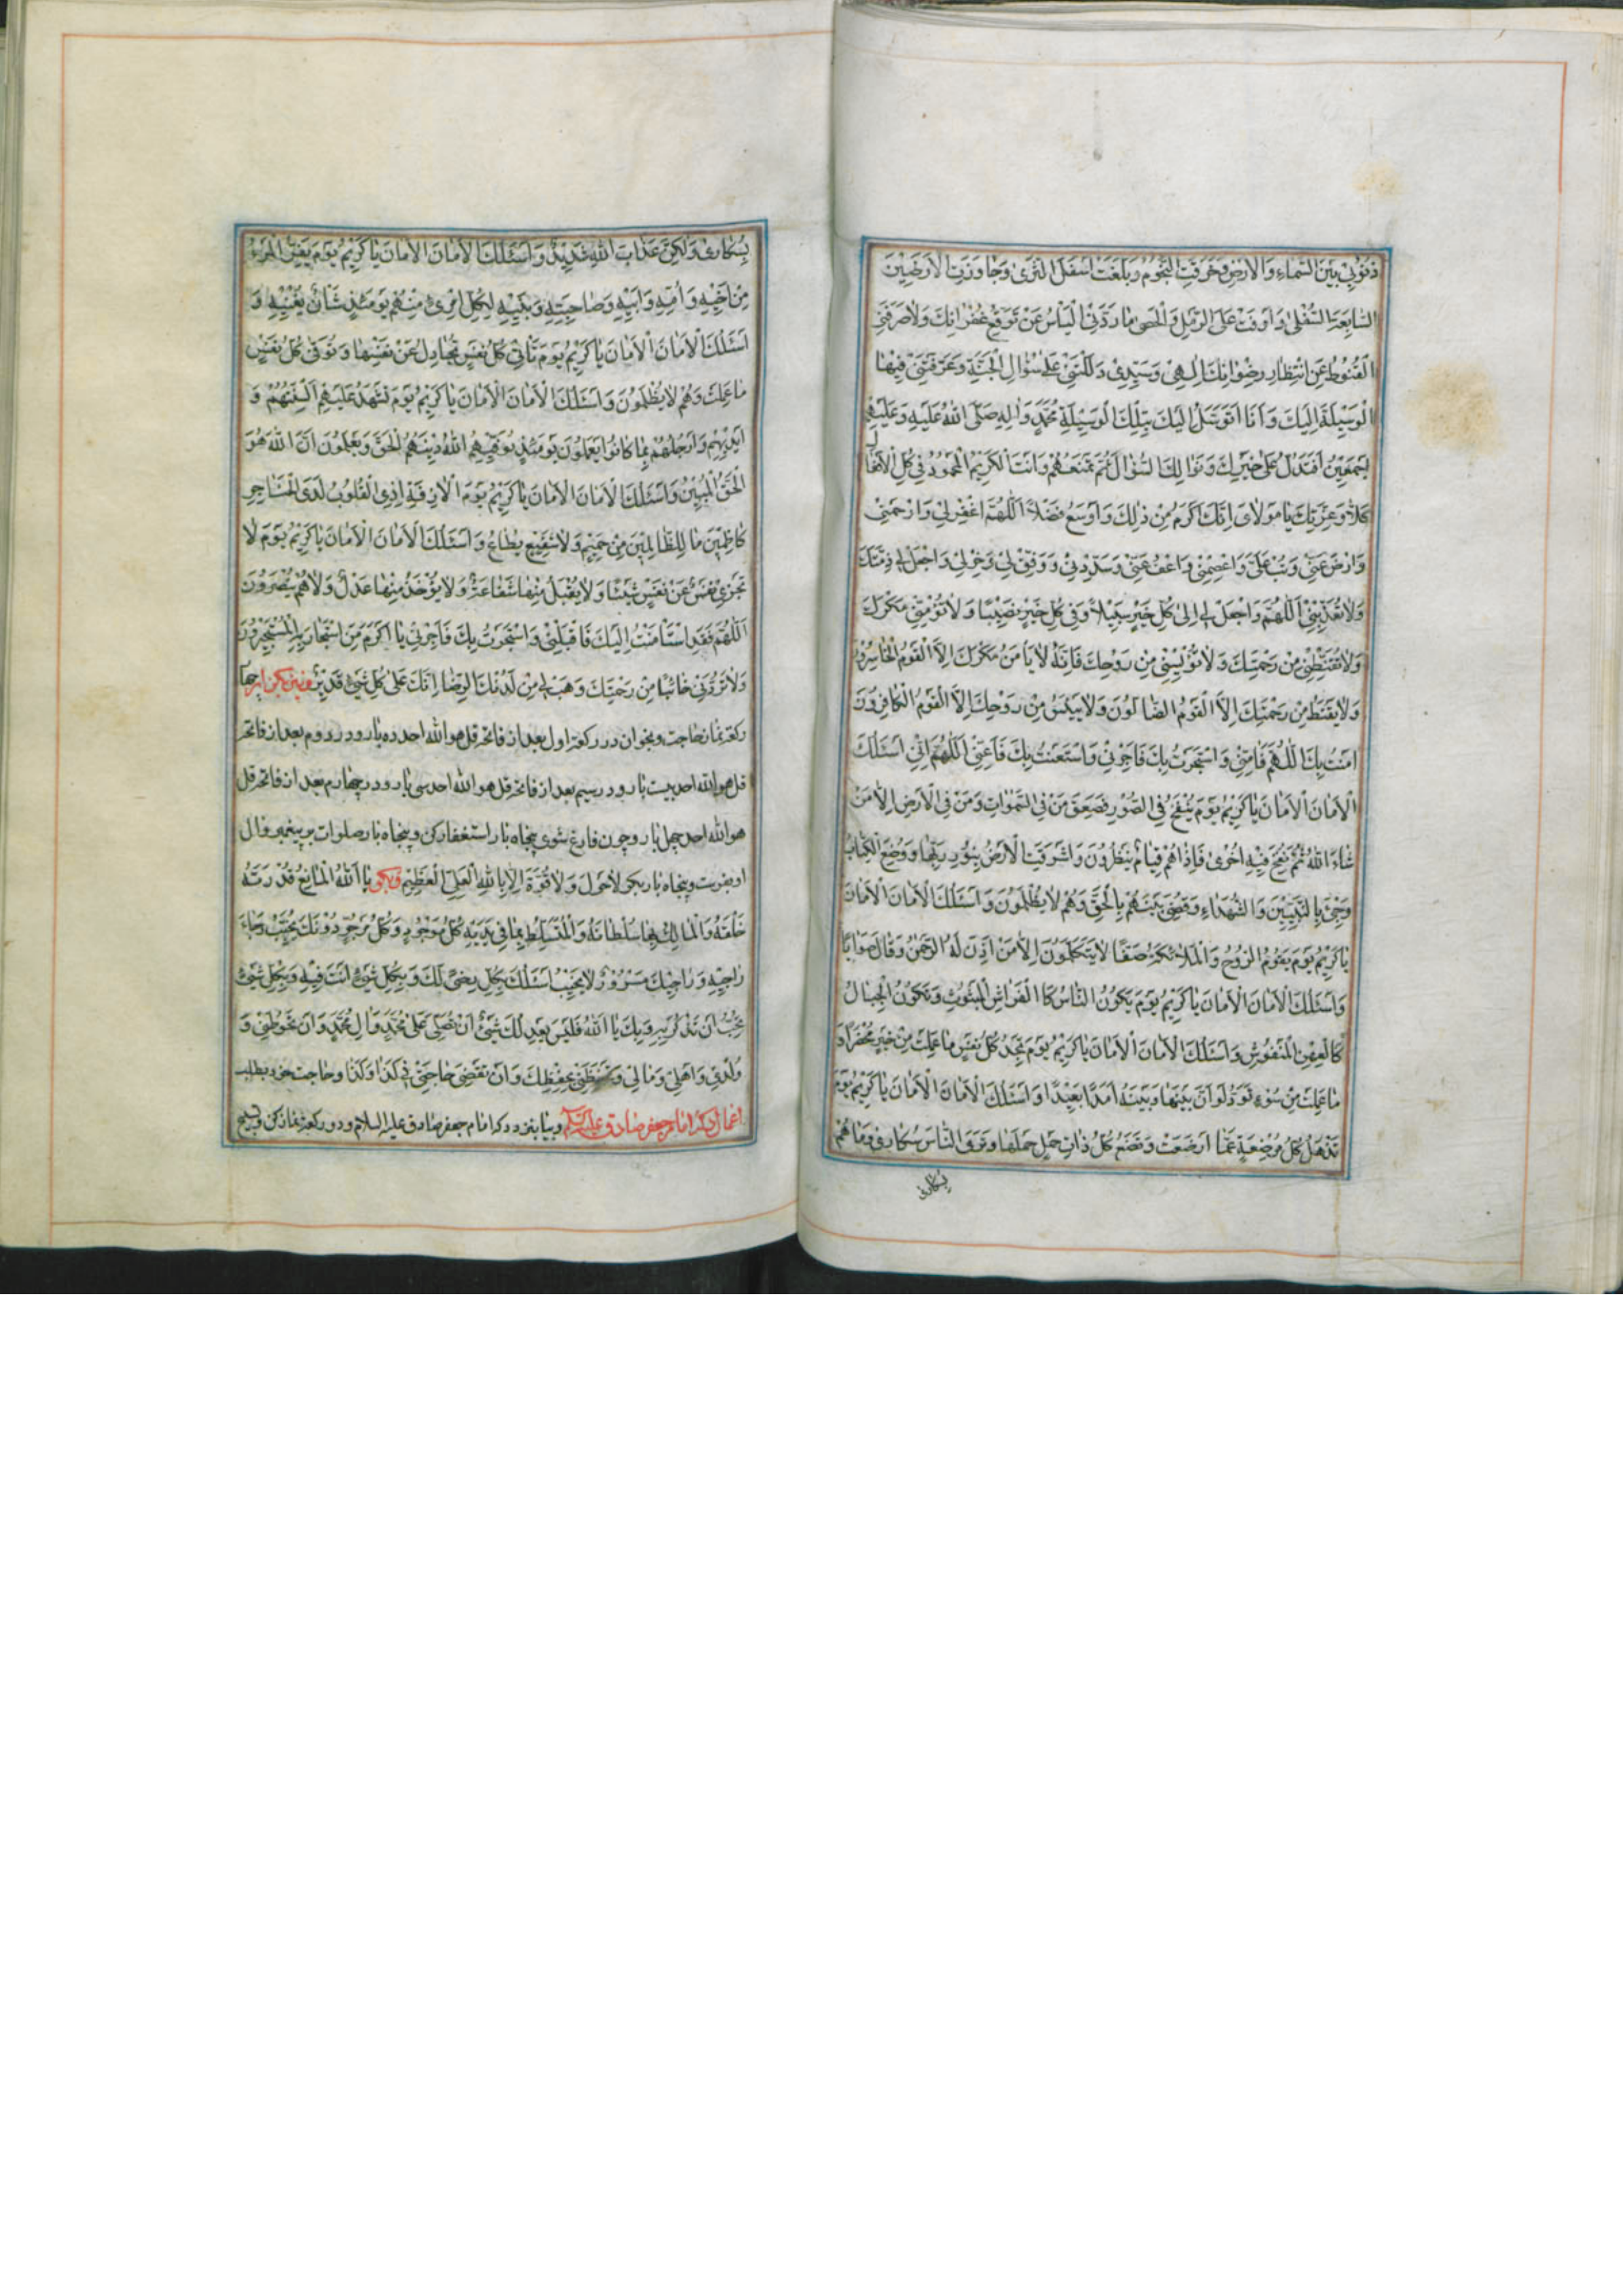 ذُنُوبِي بَيْنَ السَّمَاءِ وَالْاَرْضِ وَخَرَقَتِ النُّجُومَ وَبَلَغَتْ اَسْفَلَ الثَّرىٰ وَجَاوَزَتِ الْاَرَضِينَ
السَّابِعَةَ السُّفْلىٰ وَاَوْفَتْ عَلَى الرَّمْلِ وَالْحَصىٰ مَا رَدَّنِي الْيَاْسُ عَنْ تَوَقُّعِ غُفْرَانِكَ وَلَا صَرَفَنِي
الْقُنُوطُ عَنِ انْتِظَارِ رِضْوَانِكَ اِلٰهِي وَسَيِّدِي دَلَلْتَنِي عَلىٰ سُؤَالِ الْجَنَّةِ وَعَرَّفْتَنِي فِيهَا
الْوَسِيلَةَ اِلَيْكَ وَاَنَا اَتَوَسَّلُ اِلَيْكَ بِتِلْكَ الْوَسِيلَةِ مُحَمَّدٍ وَاٰلِهِ صَلَّى اللّٰهُ عَلَيْهِ وَعَلَيْهِمْ
اَجْمَعِينَ اَفَتَدُلُّ عَلىٰ خَيْرِكَ وَنَوَالِكَ السُّؤَّالَ ثُمَّ تَمْنَعُهُمْ وَاَنْتَ الْكَرِيمُ الْمَحْمُودُ فِي كُلِّ الْاَفْعَالِ
كَلَّا وَعِزَّتِكَ يَا مَوْلَايَ اِنَّكَ اَكْرَمُ مِنْ ذٰلِكَ وَاَوْسَعُ فَضْلًا اَللّٰهُمَّ اغْفِرْ لِي وَارْحَمْنِي
وَارْضَ عَنِّي وَتُبْ عَلَيَّ وَاعْصِمْنِي وَاعْفُ عَنِّي وَسَدِّدْنِي وَوَفِّقْ لِي وَخِرْ لِي وَاجْعَلْ لِي ذِمَّتَكَ
وَلَا تُعَذِّبْنِي اَللّٰهُمَّ وَاجْعَلْ لِي اِلىٰ كُلِّ خَيْرٍ سَبِيلًا وَفِي كُلِّ خَيْرٍ نَصِيبًا وَلَا تُؤْمِنِّي مَكْرَكَ
وَلَا تُقَنِّطْنِي مِنْ رَحْمَتِكَ وَلَا تُؤْيِسْنِي مِنْ رَوْحِكَ فَاِنَّهُ لَا يَاْمَنُ مَكْرَكَ اِلَّا الْقَوْمُ الْخَاسِرُونَ
وَلَا يَقْنَطُ مِنْ رَحْمَتِكَ اِلَّا الْقَوْمُ الضَّالُّونَ وَلَا يَيْئَسُ مِنْ رَوْحِكَ اِلَّا الْقَوْمُ الْكَافِرُونَ
اٰمَنْتُ بِكَ اللّٰهُمَّ فَاٰمِنِّي وَاسْتَجَرْتُ بِكَ فَاَجِرْنِي وَاسْتَعَنْتُ بِكَ فَاَعِنِّي اَللّٰهُمَّ اِنِّي اَسْئَلُكَ
الْاَمَانَ الْاَمَانَ يَا كَرِيمُ يَوْمَ يُنْفَخُ فِي الصُّورِ فَصَعِقَ مَنْ فِي السَّمٰوَاتِ وَمَنْ فِي الْاَرْضِ اِلَّا مَنْ
شَاءَ اللّٰهُ ثُمَّ نُفِخَ فِيهِ اُخْرىٰ فَاِذَا هُمْ قِيَامٌ يَنْظُرُونَ وَاَشْرَقَتِ الْاَرْضُ بِنُورِ رَبِّهَا وَوُضِعَ الْكِتَابُ
وَجِيئَ بِالنَّبِيِّينَ وَالشُّهَدَاءِ وَقُضِيَ بَيْنَهُمْ بِالْحَقِّ وَهُمْ لَا يُظْلَمُونَ وَاَسْئَلُكَ الْاَمَانَ الْاَمَانَ
يَا كَرِيمُ يَوْمَ يَقُومُ الرُّوحُ وَالْمَلَائِكَةُ صَفًّا لَا يَتَكَلَّمُونَ اِلَّا مَنْ اَذِنَ لَهُ الرَّحْمٰنُ وَقَالَ صَوَابًا
وَاَسْئَلُكَ الْاَمَانَ الْاَمَانَ يَا كَرِيمُ يَوْمَ يَكُونُ النَّاسُ كَالْفَرَاشِ الْمَبْثُوثِ وَتَكُونُ الْجِبَالُ
كَالْعِهْنِ الْمَنْفُوشِ وَاَسْئَلُكَ الْاَمَانَ الْاَمَانَ يَا كَرِيمُ يَوْمَ تَجِدُ كُلُّ نَفْسٍ مَا عَمِلَتْ مِنْ خَيْرٍ مُحْضَرًا وَ
مَا عَمِلَتْ مِنْ سُوءٍ تَوَدُّ لَوْ اَنَّ بَيْنَهَا وَبَيْنَهُ اَمَدًا بَعِيدًا وَاَسْئَلُكَ الْاَمَانَ الْاَمَانَ يَا كَرِيمُ يَوْمَ
تَذْهَلُ كُلُّ مُرْضِعَةٍ عَمَّا اَرْضَعَتْ وَتَضَعُ كُلُّ ذَاتِ حَمْلٍ حَمْلَهَا وَتَرَى النَّاسَ سُكَارىٰ وَمَا هُمْ
بِسُكَارىٰ
بِسُكَارىٰ وَلٰكِنَّ عَذَابَ اللّٰهِ شَدِيدٌ وَاَسْئَلُكَ الْاَمَانَ الْاَمَانَ يَا كَرِيمُ يَوْمَ يَفِرُّ الْمَرْءُ
مِنْ اَخِيهِ وَاُمِّهِ وَاَبِيهِ وَصَاحِبَتِهِ وَبَنِيهِ لِكُلِّ امْرِئٍ مِنْهُمْ يَوْمَئِذٍ شَاْنٌ يُغْنِيهِ وَ
اَسْئَلُكَ الْاَمَانَ الْاَمَانَ يَا كَرِيمُ يَوْمَ تَاْتِي كُلُّ نَفْسٍ تُجَادِلُ عَنْ نَفْسِهَا وَتُوَفّىٰ كُلُّ نَفْسٍ
مَا عَمِلَتْ وَهُمْ لَا يُظْلَمُونَ وَاَسْئَلُكَ الْاَمَانَ الْاَمَانَ يَا كَرِيمُ يَوْمَ تَشْهَدُ عَلَيْهِمْ اَلْسِنَتُهُمْ وَ
اَيْدِيهِمْ وَاَرْجُلُهُمْ بِمَا كَانُوا يَعْمَلُونَ يَوْمَئِذٍ يُوَفِّيهِمُ اللّٰهُ دِينَهُمُ الْحَقَّ وَيَعْلَمُونَ اَنَّ اللّٰهَ هُوَ
الْحَقُّ الْمُبِينُ وَاَسْئَلُكَ الْاَمَانَ الْاَمَانَ يَا كَرِيمُ يَوْمَ الْاٰزِفَةِ اِذِ الْقُلُوبُ لَدَى الْحَنَاجِرِ
كَاظِمِينَ مَا لِلظَّالِمِينَ مِنْ حَمِيمٍ وَلَا شَفِيعٍ يُطَاعُ وَاَسْئَلُكَ الْاَمَانَ الْاَمَانَ يَا كَرِيمُ يَوْمَ لَا
تَجْزِي نَفْسٌ عَنْ نَفْسٍ شَيْئًا وَلَا يُقْبَلُ مِنْهَا شَفَاعَةٌ وَلَا يُؤْخَذُ مِنْهَا عَدْلٌ وَلَا هُمْ يُنْصَرُونَ
اَللّٰهُمَّ فَقَدِ اسْتَاْمَنْتُ اِلَيْكَ فَاقْبَلْنِي وَاسْتَجَرْتُ بِكَ فَاَجِرْنِي يَا اَكْرَمَ مَنِ اسْتَجَارَ بِهِ الْمُسْتَجِيرُونَ
وَلَا تَرُدَّنِي خَائِبًا مِنْ رَحْمَتِكَ وَهَبْ لِي مِنْ لَدُنْكَ الرِّضَا اِنَّكَ عَلىٰ كُلِّ شَيْءٍ قَدِيرٌ چهار
ركعة نماز حاجت و بخوان در ركعة اول بعد از فاتحه قل هو الله احد ده بار و در دوم بعد از فاتحه
قل هو الله احد بيست بار و در سيم بعد از فاتحه قل هو الله احد سی بار و در چهارم بعد از فاتحه قل
هو الله احد چهل بار و چون فارغ شوی پنجاه بار استغفار كن و پنجاه بار صلوات بر پيغمبر و آل
او بفرست و پنجاه بار بگو لَا حَوْلَ وَلَا قُوَّةَ اِلَّا بِاللّٰهِ الْعَلِيِّ الْعَظِيمِ و بگو يَا اَللّٰهُ الْمَانِعُ قُدْرَتَهُ
خَلْقَهُ وَالْمَالِكُ بِهَا سُلْطَانَهُ وَالْمُتَسَلِّطُ بِمَا فِي يَدَيْهِ كُلُّ مَوْجُودٍ وَكُلُّ مَرْجُوٍّ دُونَكَ يُخَيِّبُ رَجَاءَ
رَاجِيهِ وَرَاجِيكَ مَسْرُورٌ لَا يَخِيبُ اَسْئَلُكَ بِكُلِّ رِضىً لَكَ وَبِكُلِّ شَيْءٍ اَنْتَ فِيهِ وَبِكُلِّ شَيْءٍ
تُحِبُّ اَنْ تُذْكَرَ بِهِ وَبِكَ يَا اَللّٰهُ فَلَيْسَ يَعْدِلُكَ شَيْءٌ اَنْ تُصَلِّيَ عَلىٰ مُحَمَّدٍ وَاٰلِ مُحَمَّدٍ وَاَنْ تَحُوطَنِي وَ
وُلْدِي وَاَهْلِي وَمَالِي وَتَحْفَظَنِي بِحِفْظِكَ وَاَنْ تَقْضِيَ حَاجَتِي فِي كَذَا وَكَذَا و حاجت خود بطلب
اعمال دكه امام جعفر صادق عليه السلام و بيا بنزد دكه امام جعفر صادق عليه السلام و دو ركعة نماز كن و تسبيح